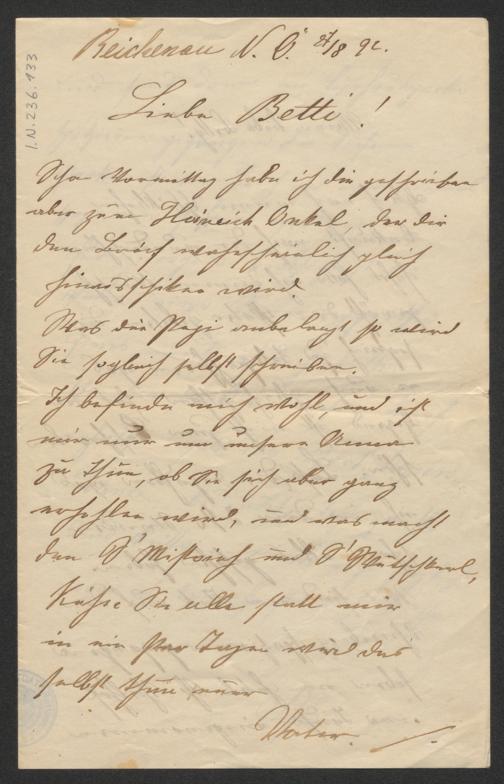 I.N. 236.133
Reichenau N. Ö. 27/8 92.
Liebe Betti!
Schon Vormittag habe ich dir geschrieben
aber zum Heinrich Onkel, der dir
den Brief wahrscheinlich gleich
hinausschiken wird.
Was die Pepi anbelangt so wird
Sie sogleich selbst schreiben.
Ich befinde mich wohl, und ist
mir nur um unsere Anna
zu thun, ob Sie sich aber ganz
erhohlen wird, und was macht
den S' und S'
Küsse Sie alle statt mir
in ein Par Tagen wird das
selbst thun euer
Vater.